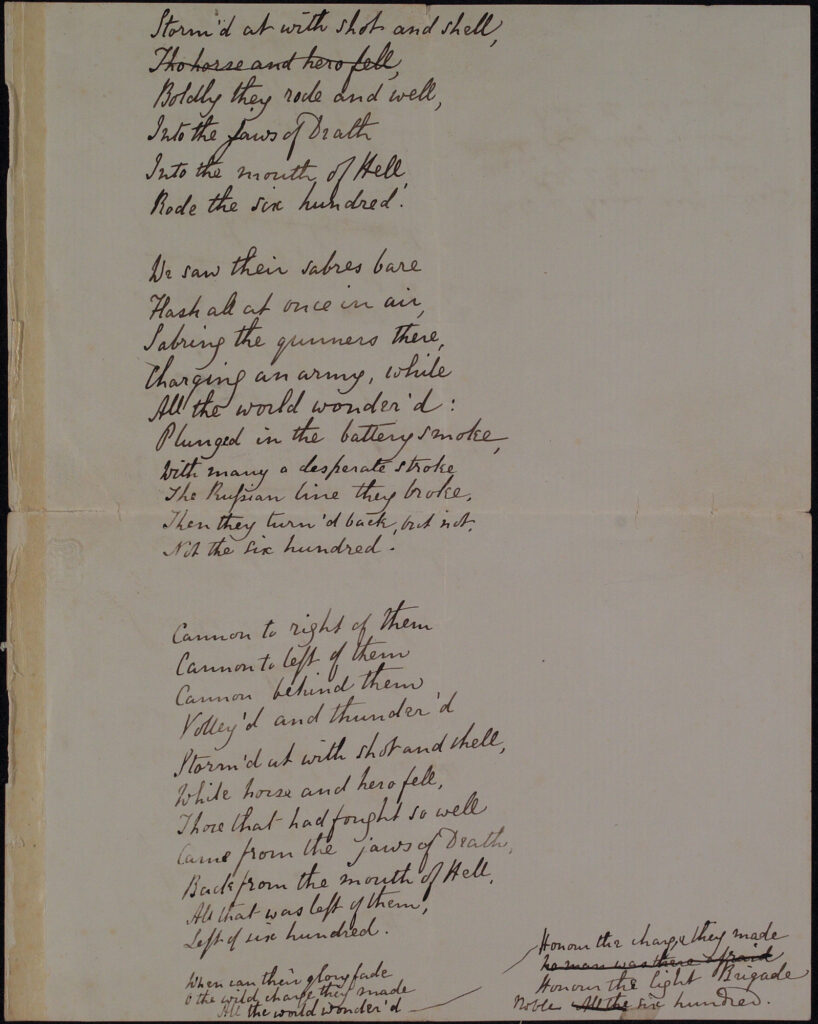 Storm'd at with shot and shell,
Tho horse and hero fell,
Boldly they rode and well,
Into the jaws of Death
Into the mouth of Hell
Rode the six hundred.
We saw their sabres bare
Flash all at once in air,
Sabring the gunners there,
Charging an army, while
All the world wonder'd:
Plunged in the battery smoke,
With many a desperate stroke
The Russian line they broke,
Then they turn'd back, but not.
Not the six hundred.
Cannon to right of them
Cannon to left of them
Cannon behind them
Volley'd and thunder'd
Storm'd at with shot and shell,
While horse and hero fell,
Those that had fought so well
Came from the jaws of Death,
Back from the mouth of Hell,
All that was left of them,
Left of six hundred.
When can their glory fade
O the wild charge they made
All the world wonder'd
Honour the charge they made
No man was there afraid
Honour the Light Brigade
Noble All the six hundred.